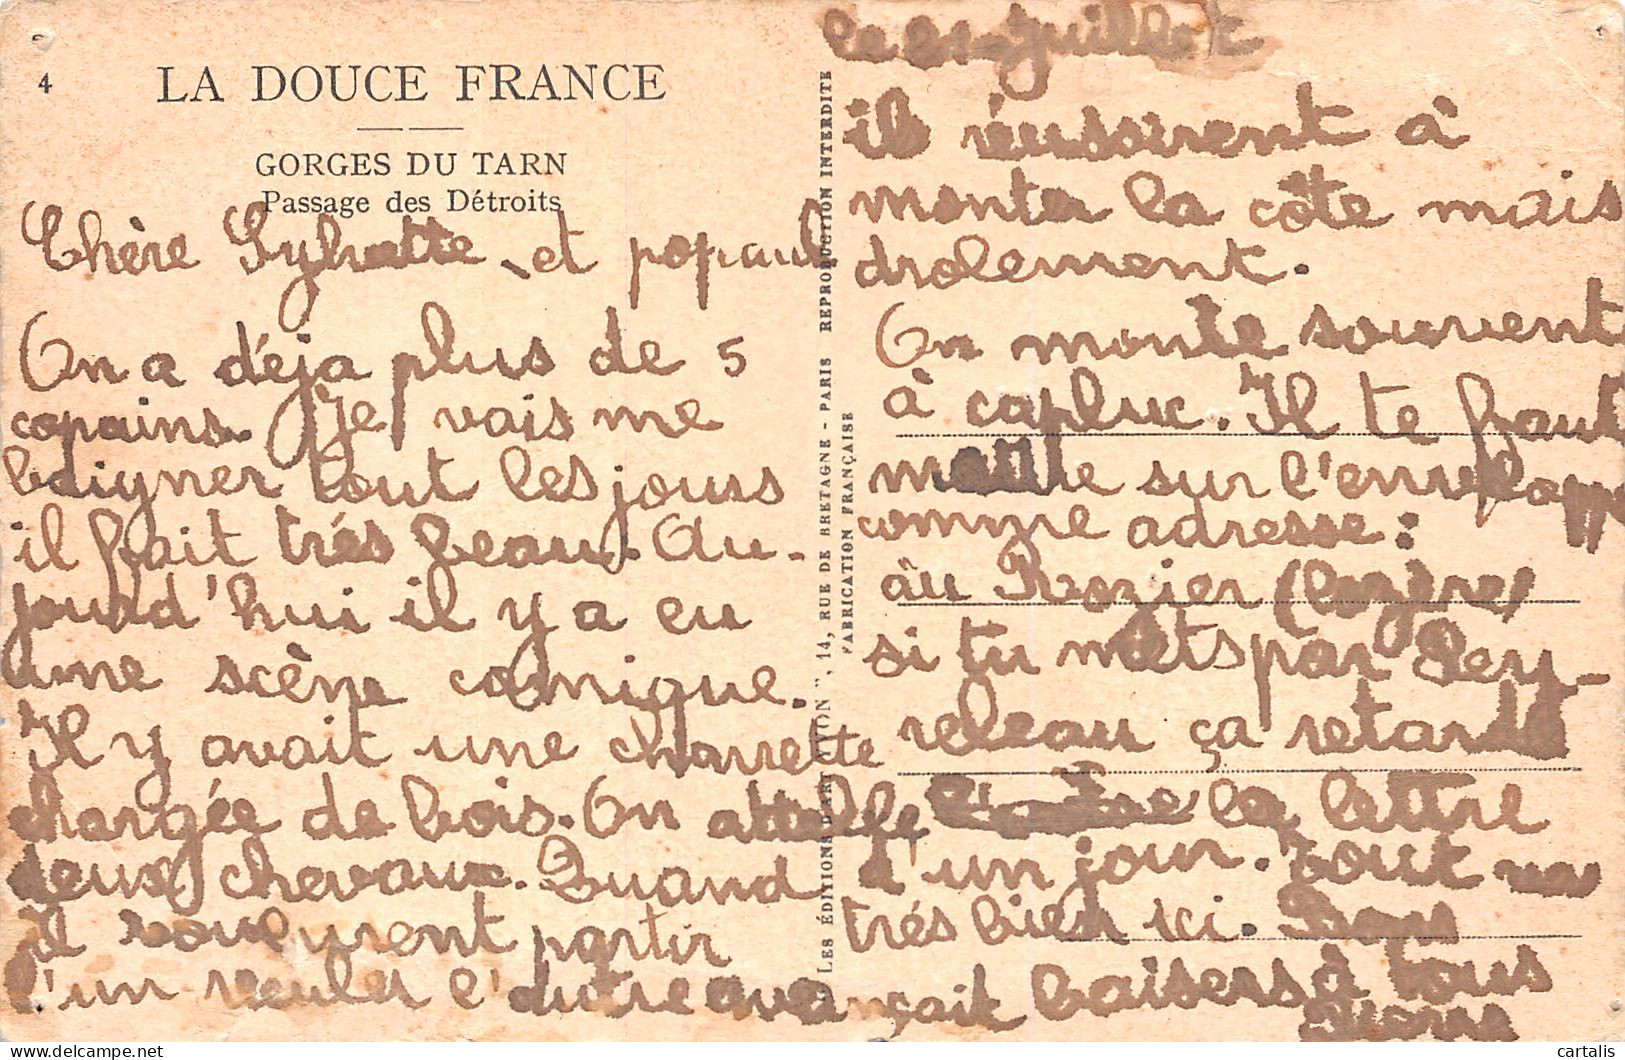 4
LA DOUCE FRANCE
GORGES DU TARN
Passage des Détroits
Chère Sylvette et popaul
On a déja plus de 5
copains. Je vais me
baigner tout les jours
il fait trés beau. Au-
jourd'hui il y a eu
une scène comique.
Il y avait une charrette
chargée de bois. On attelle
deux chevaux. Quand
il voulurent partir
l'un reculer l'autre avançait
LES ÉDITIONS D'ART YVON", 14, RUE DE BRETAGNE - PARIS REPRODUCTION INTERDITE
FABRICATION FRANÇAISE
le juillet
ils réussirent à
monter la côte mais
drolement.
On monte souvent
à capluc. Il te faut
mettre sur l'enveloppe
comme adresse:
au Rozier (lozère)
si tu mets par Pey-
releau ça retarde
la lettre
d'un jour. Tout va
trés bien ici. Bons
baisers à tous
cartalis